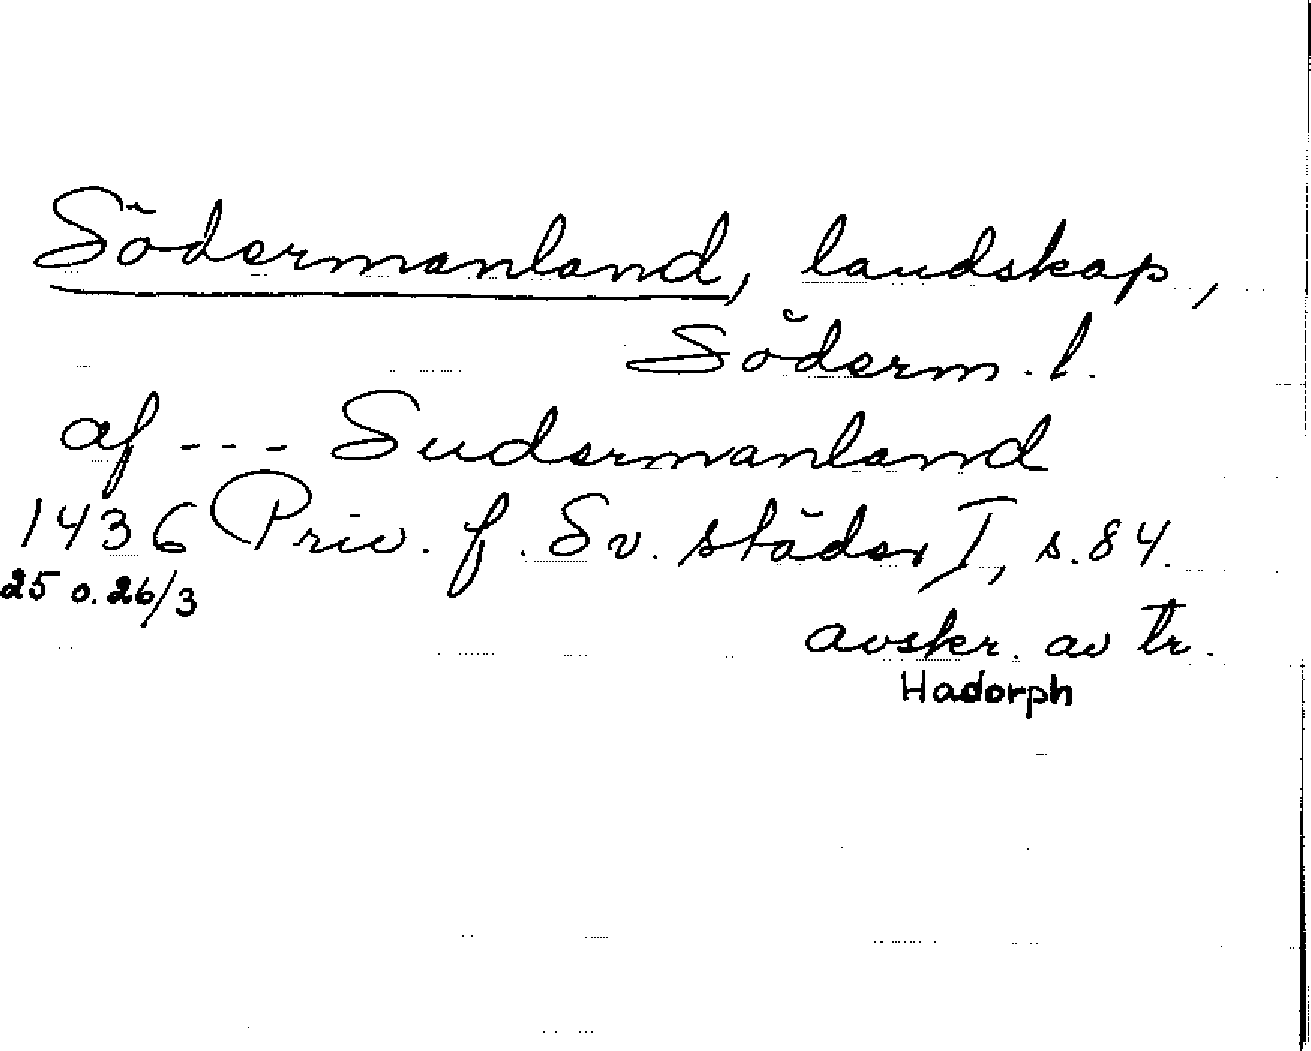 Södermanland, landskap,
Söderm. l.
af --- Sudermanland
1436 Priv. f. Sv. städer I, s. 84.
25 o. 26/3
avskr. av tr.
Hadorph